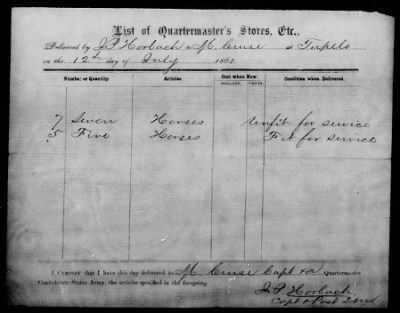 List of Quartermaster's Stores, Etc.,
Delivered by J P Horbach to M Cruse at Tupelo
on the 12th day of July 1862.
Number or Quantity. Articles. Cost when New. Condition when Delivered.
DOLLARS. CENTS.
7 Seven Horses Unfit for service
5 Five Horses Fit for service
I Certify that I have this day delivered to M Cruse Capt & a Quartermaster
Confederate States Army, the articles specified in the foregoing.
J. P. Horbach
Capt & Post